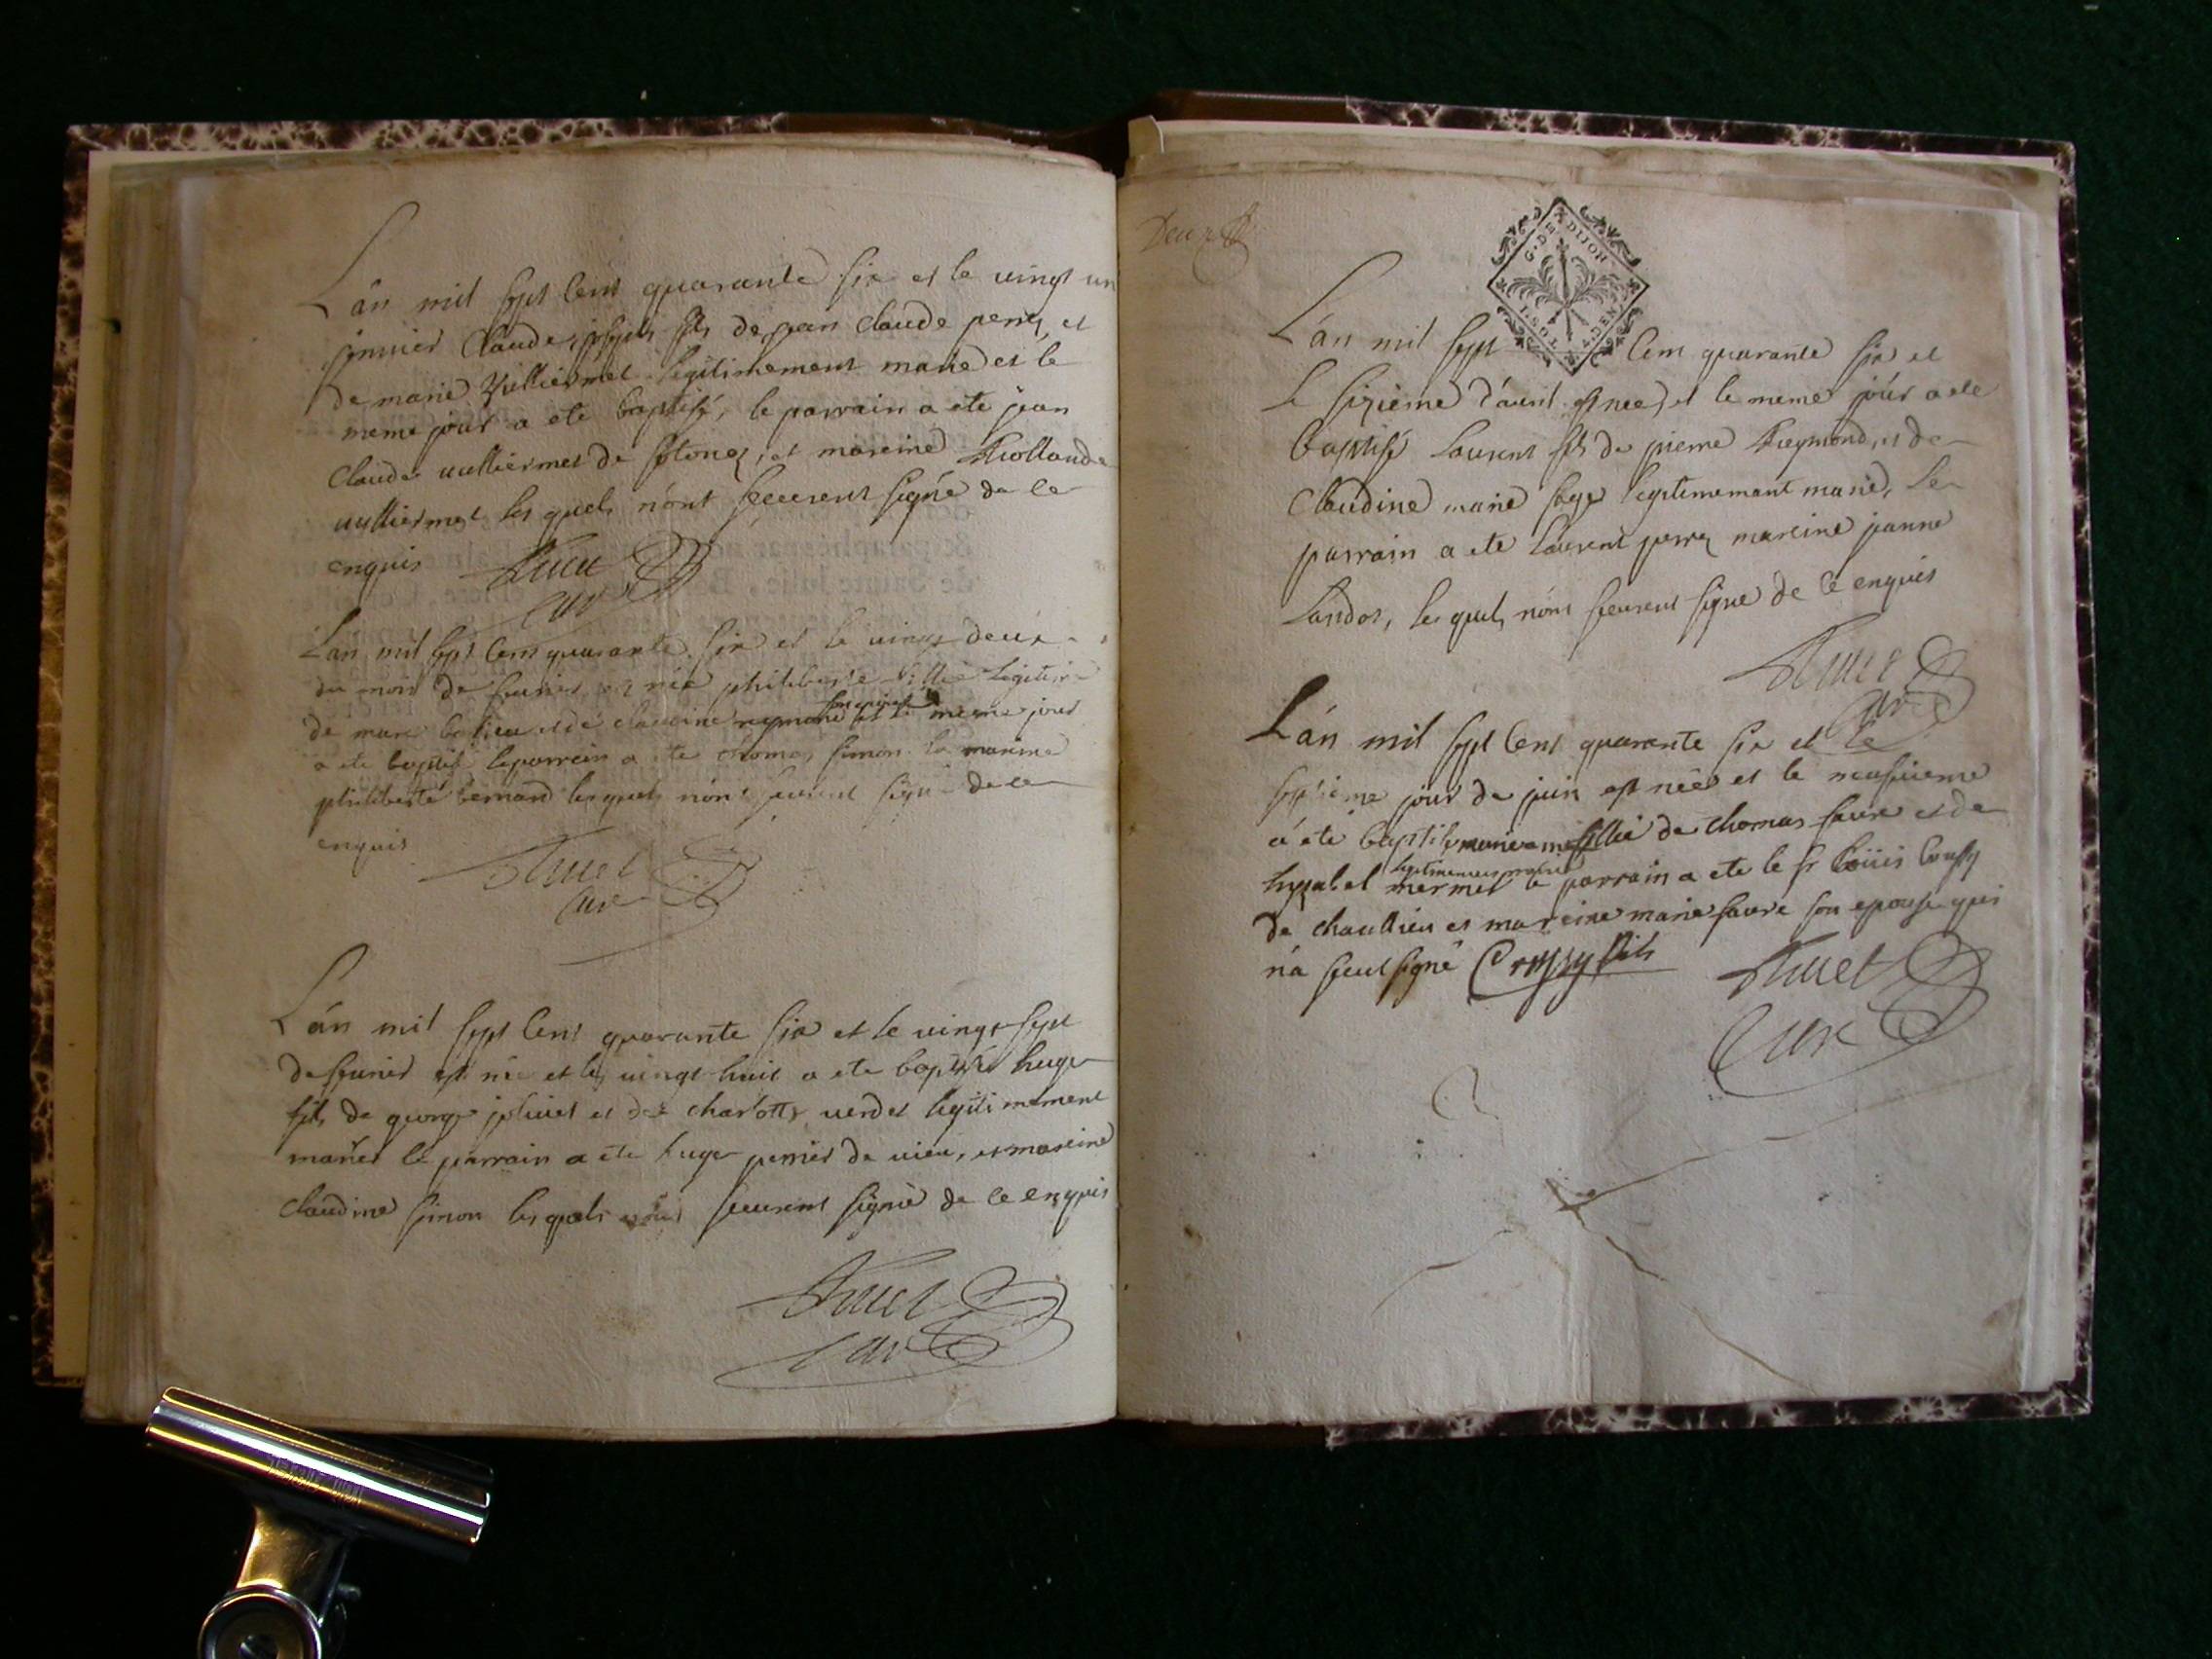 L'an mil sept cent quarante six et le vingt un
janvier Claude joseph fils de jean Claude perra et
de marie Vulliermet legitimement marié et le
meme jour a ete baptisé, le parrain a ete jean
Claude vulliermet de et mareine
vulliermet les quels n'ont sceurent signé de ce
enquis
curé
L'an mil sept cent quarante six et le vingt deux
du mois de fevrier est née philiberte fillie legitime
de marc et de claudine et le meme jour
a ete baptisé le parrein a ete thomas simon la mareine
philiberte bernard lesquels n'ont sceurent signé de ce
enquis
Curé
L'an mil sept cent quarante six et le vingt sept
de fevrier est né et le vingt huit a ete baptisé huge
fils de george jolivet et de charlotte verdet legitimement
mariés le parrain a ete huge perrier de vieu, et mareine
Claudine simon les quels n'ont sceurent signé de ce enquis
curé
G. DE DIJON
L'an mil sept Cent quarante six et
le sizieme d'avril est née, et le meme jour a ete
baptisé Laurent fils de pierre Reymond, et de
Claudine marie foge legitimemant marié, le
parrain a ete laurent perra mareine jeanne
Landos, les quels n'ont sceurent signe de ce enquis
Curé
L'an mil sept Cent quarante six et le
septieme jour de juin est née et le neufvieme
a été baptisé fillie de thomas favre et de
legitimement marié
mermet le parrain a ete le sr Loüis
de chaullieu et mareine marie favre son epouse qui
n'a sceut signé fils
Curé